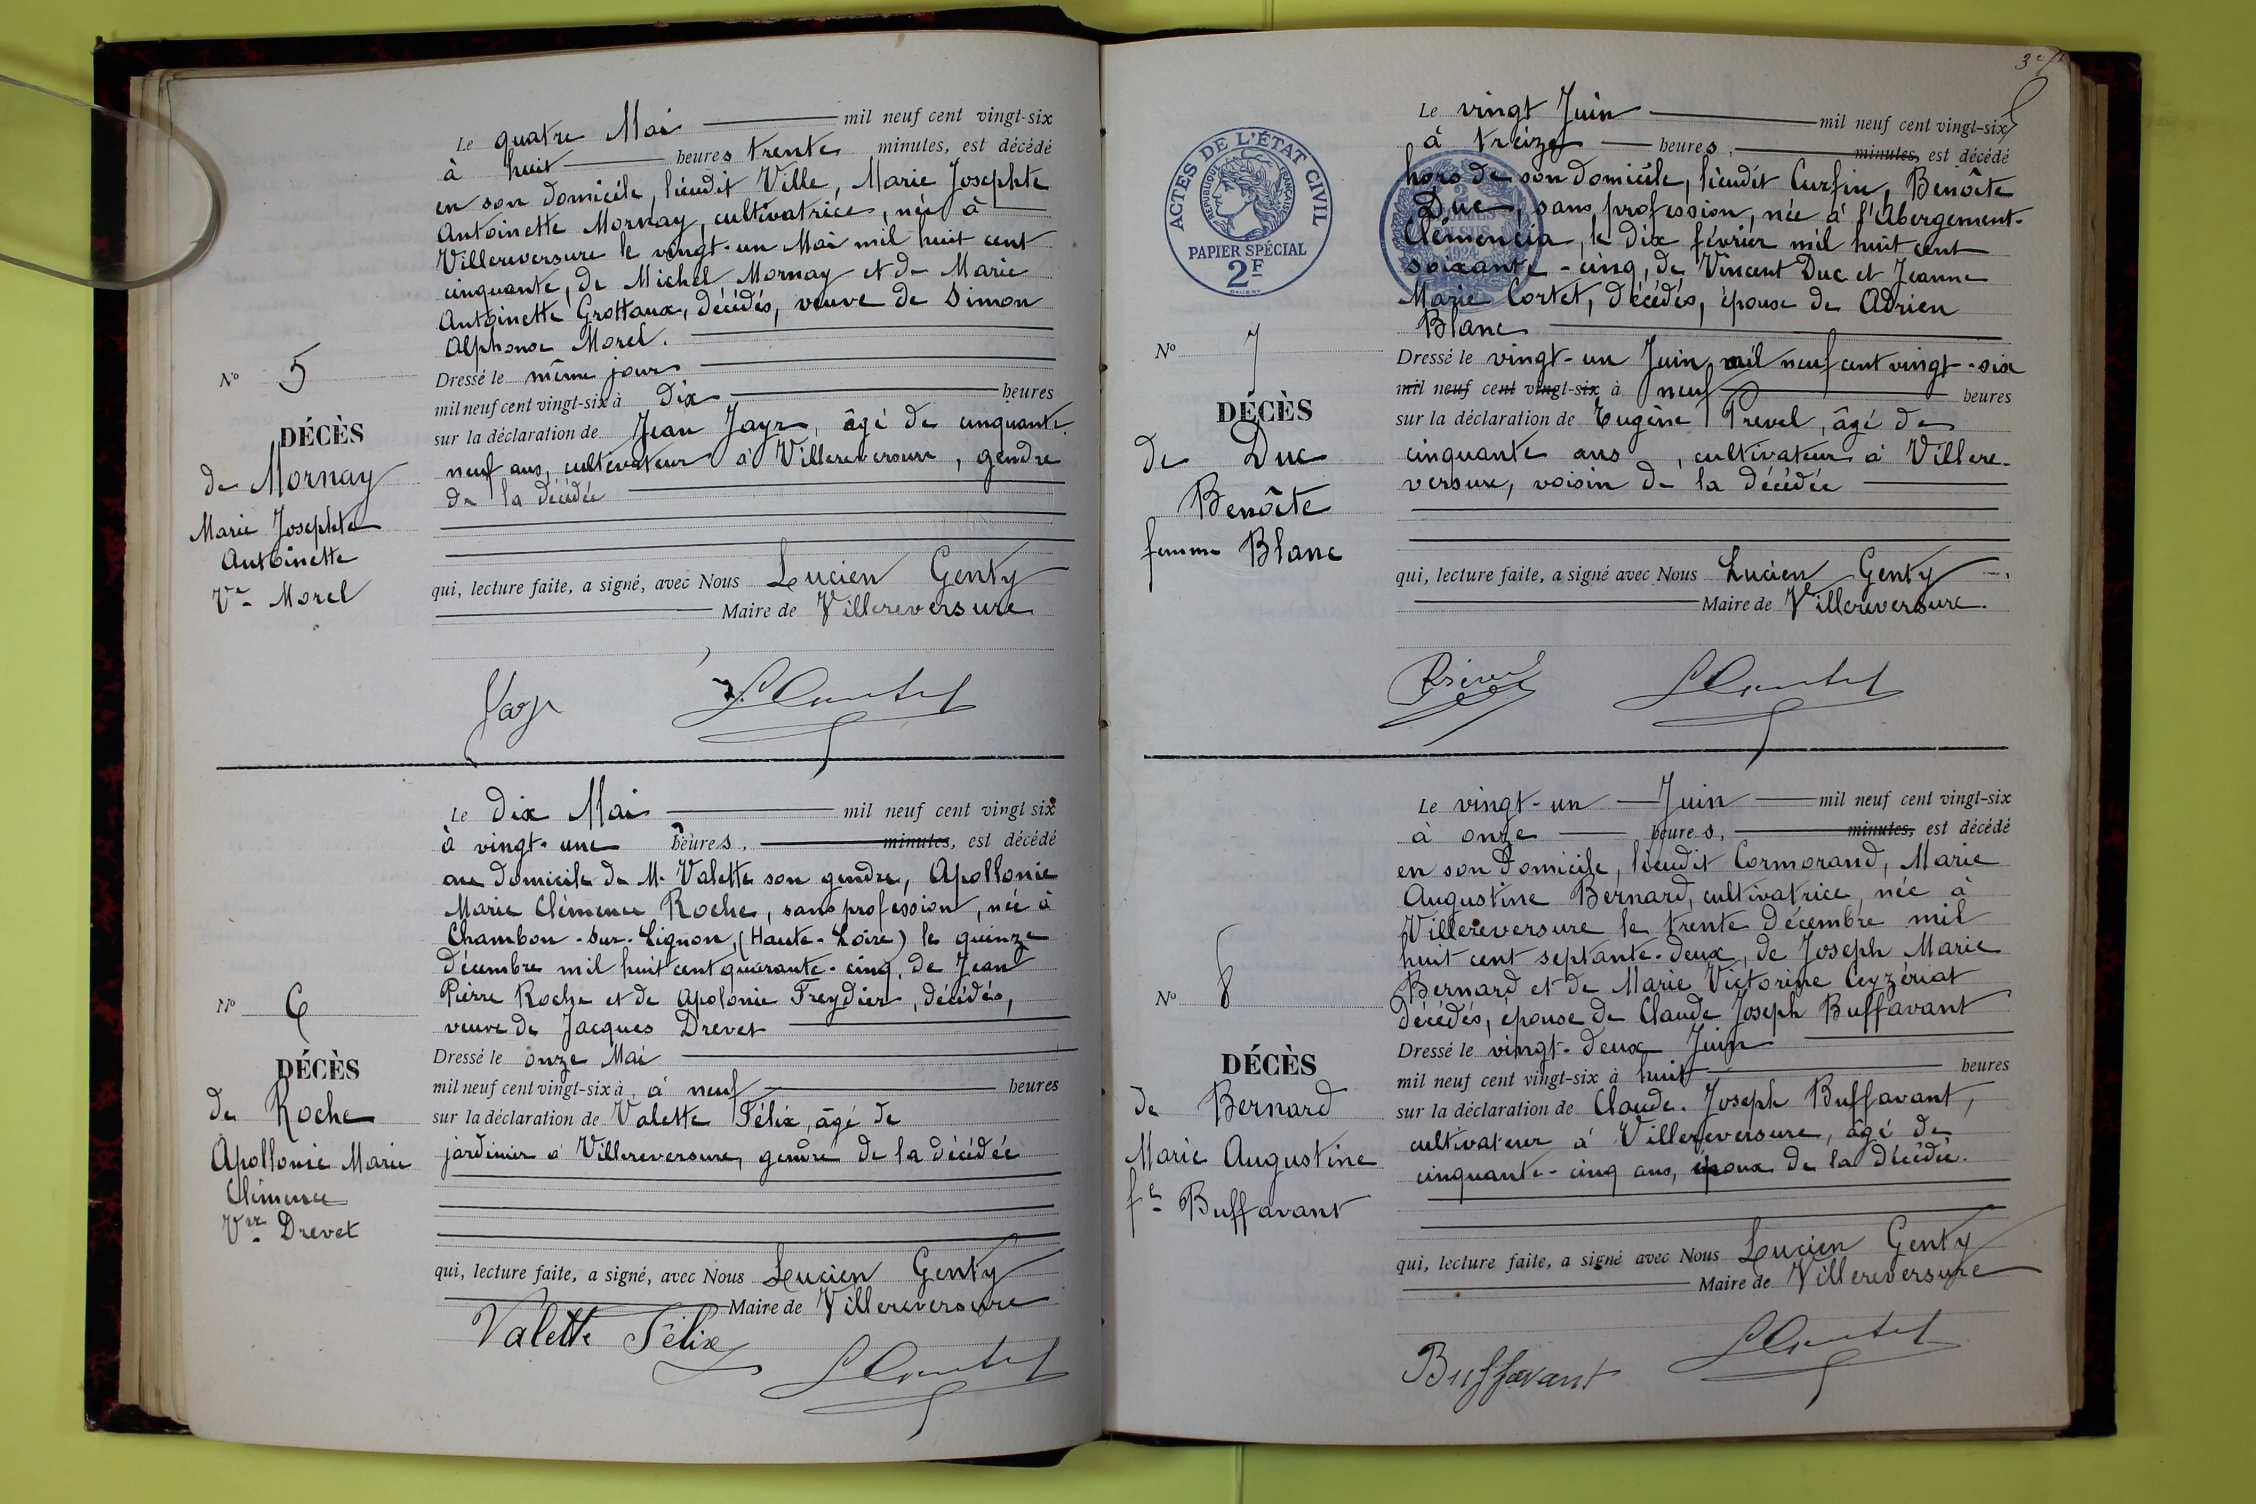 Le quatre Mai mil neuf cent vingt-six
à huit heures trente minutes, est décédé
en son domicile, lieudit Ville, Marie Josephte
Antoinette Mornay, cultivatrice, née à
Villereversure le vingt-un Mai mil huit cent
cinquante, de Michel Mornay et de Marie
Antoinette Grottaux, décédés, veuve de Simon
Alphonse Morel.
Dressé le même jour
mil neuf cent vingt-six à dix heures
sur la déclaration de Jean Jayr, âgé de cinquante-
neuf ans, cultivateur à Villereversure, gendre
de la décédée
qui, lecture faite, a signé, avec Nous Lucien Genty
Maire de Villereversure
Nº 5
DÉCÈS
de Mornay
Marie Josephte
Antoinette
Ve Morel
Jayr
Le dix Mai mil neuf cent vingt six
à vingt-une heures, minutes, est décédé
au domicile de M. Valette son gendre, Apollonie
Marie Clémence Roche, sans profession, née à
Chambon-sur-Lignon, (Haute-Loire) le quinze
décembre mil huit cent quarante-cinq, de Jean
Pierre Roche et de Apolonie Freydier, décédés,
veuve de Jacques Drevet
Dressé le onze Mai
mil neuf cent vingt-six à à neuf heures
sur la déclaration de Valette Félix, âgé de
jardinier à Villereversure, gendre de la décédée
qui, lecture faite, a signé, avec Nous Lucien Genty
Maire de Villereversure
Nº 6
DÉCÈS
de Roche
Apollonie Marie
Clémence
Vve Drevet
Valette Félix
ACTES DE L'ÉTAT CIVIL
RÉPUBLIQUE FRANÇAISE
PAPIER SPÉCIAL
2F
EN SUS
1924
Le vingt Juin mil neuf cent vingt-six
à treize heures, minutes, est décédé
hors de son domicile, lieudit Curfin, Benôite
Duc, sans profession, née à l'Abergement-
Clémencia, le dix février mil huit cent
soixante-cinq, de Vincent Duc et Jeanne
Marie Cortet, décédés, épouse de Adrien
Blanc
Dressé le vingt-un Juin mil neuf cent vingt-six
mil neuf cent vingt-six à neuf heures
sur la déclaration de Eugène Prevel, âgé de
cinquante ans, cultivateur à Villere-
versure, voisin de la décédée
qui, lecture faite, a signé avec Nous Lucien Genty
Maire de Villereversure.
Nº 7
DÉCÈS
de Duc
Benôite
femme Blanc
Le vingt-un Juin mil neuf cent vingt-six
à onze heures, minutes, est décédé
en son domicile, lieudit Cormorand, Marie
Augustine Bernard, cultivatrice, née à
Villereversure le trente décembre mil
huit cent septante-deux, de Joseph Marie
Bernard et de Marie Victorine Ceyzériat
décédés, épouse de Claude Joseph Buffavant
Dressé le vingt-deux Juin
mil neuf cent vingt-six à huit heures
sur la déclaration de Claude-Joseph Buffavant,
cultivateur à Villereversure, âgé de
cinquante-cinq ans, époux de la décédée.
qui, lecture faite, a signé avec Nous Lucien Genty
Maire de Villereversure
Nº 8
DÉCÈS
de Bernard
Marie Augustine
fe Buffavant
Buffavant